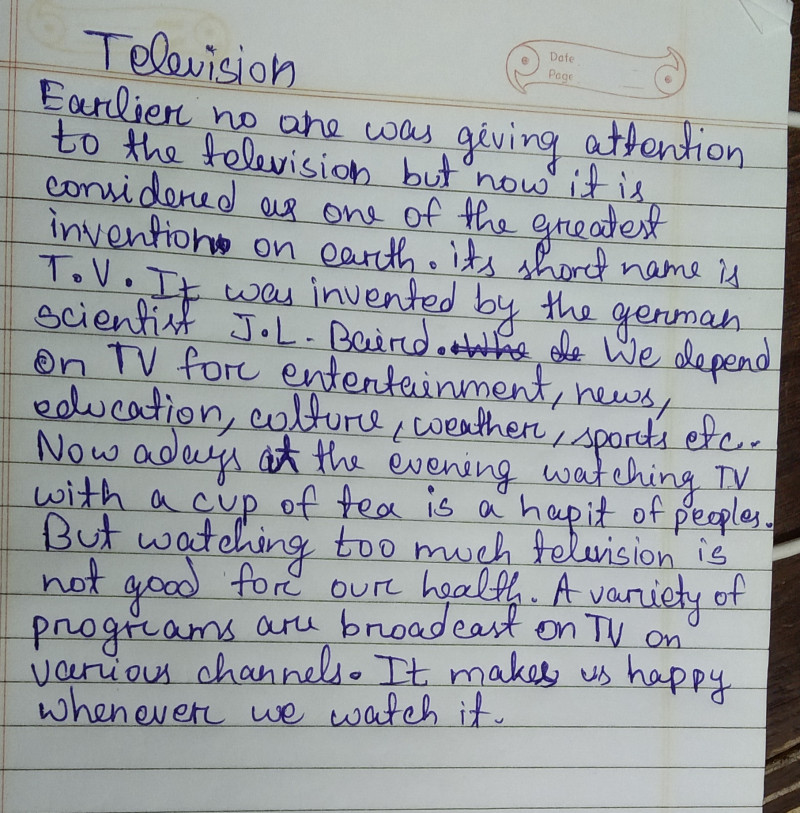 Date
Page
Television
Earlier no one was giving attention
to the television but now it is
considered as one of the greatest
invention on earth. its short name is
T.V. It was invented by the german
scientist J.L. Baird. We depend
on TV for entertainment, news,
education, culture, weather, sports etc..
Now adays at the evening watching TV
with a cup of tea is a hapit of peoples.
But watching too much television is
not good for our health. A variety of
programs are broadcast on TV on
various channels. It makes us happy
whenever we watch it.